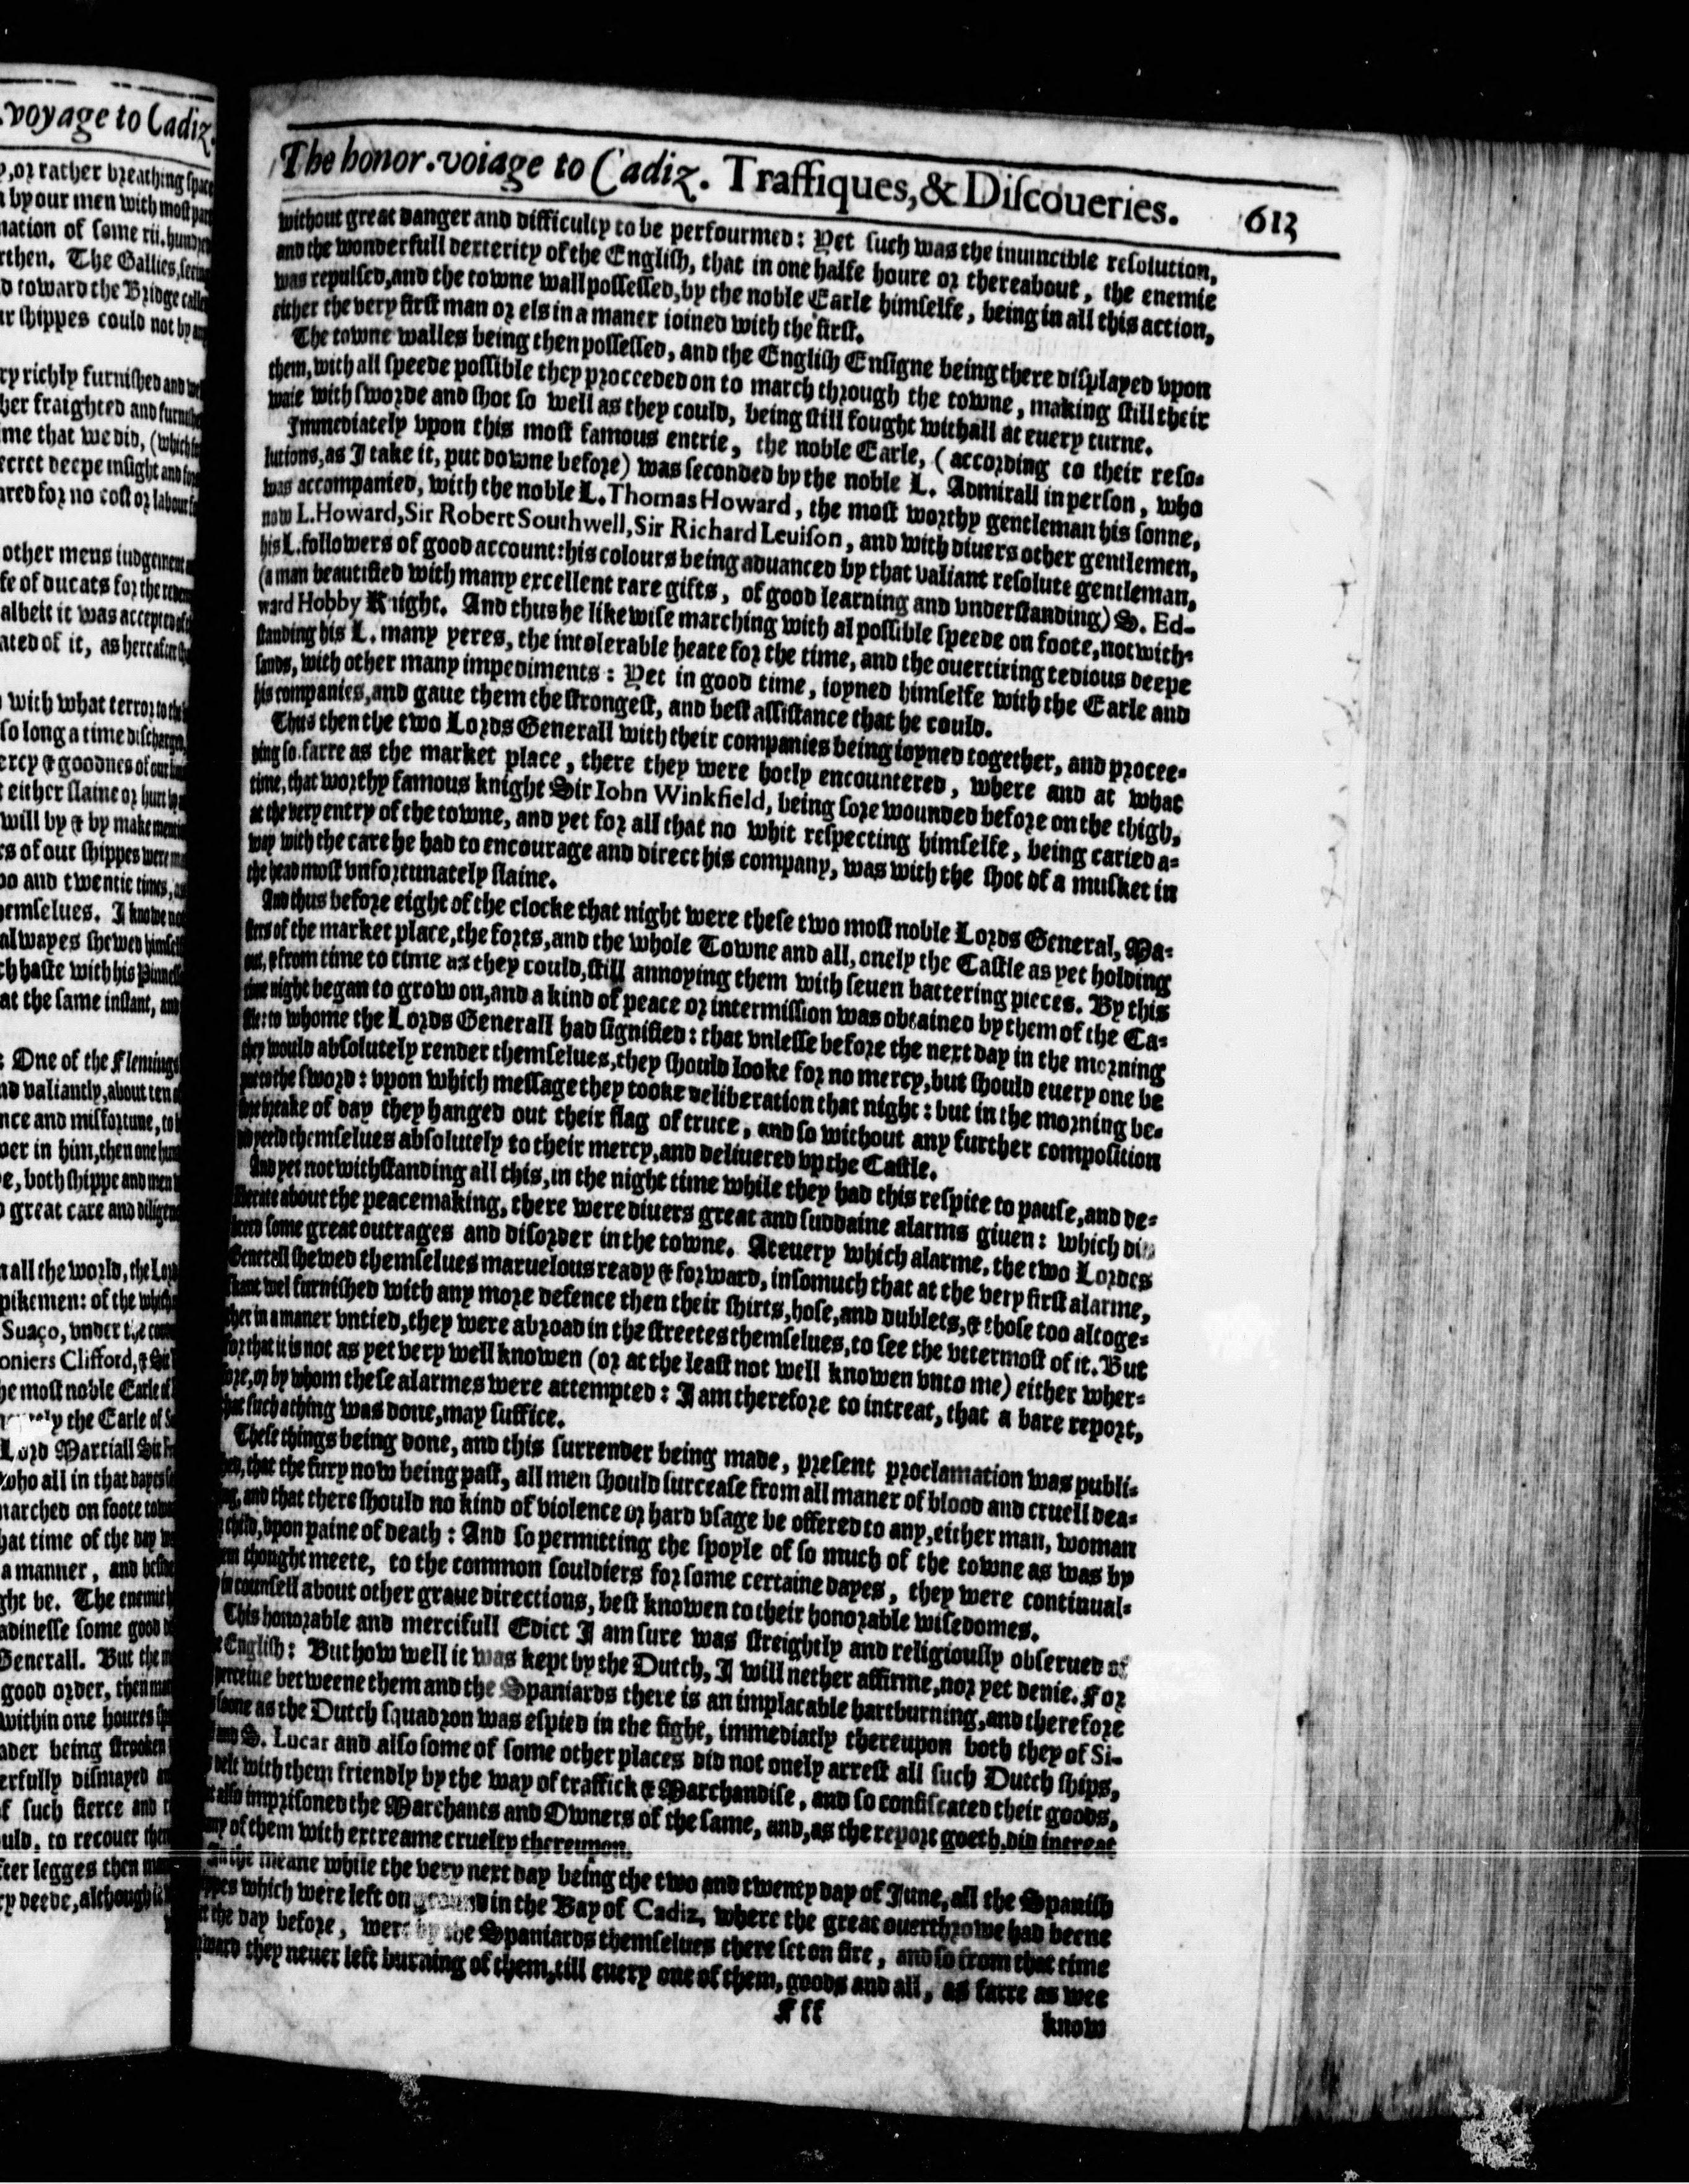 voyage to Cadiz.
,or rather breathing space
by our men with most part
nation of some xii. hundred
rthen. The Gallies, seeing
d toward the Bridge called
ur shippes could not by any
ry richly furnished and wel
her fraighted and furnished
me that we did, (which
ecret deepe insight and
ared for no cost or labour
other mens iudgement
se of ducats for the
albeit it was accepted of
ated of it, as hereafter
with what terror to the
so long a time discharged,
ercy & goodnes of our
either slaine or hurt by
will by & by make mention
rs of our shippes were
oo and twentie times,
hemselues. I knowe not
alwayes shewed himself
ch haste with his Pinnesse
at the same instant, and
: One of the Flemings
nd valiantly, about ten of
nce and misfortune, to
der in him, then one
e, both shippe and men
great care and diligence
n all the world, the Lord
pikemen: of the which
Suaço, vnder the
oniers Clifford, & Sir
he most noble Earle of
the Earle of
Lord Martiall Sir
who all in that dayes
marched on foote
hat time of the day
a manner, and
ght be. The enemie
adinesse some good
Generall. But the
good order, then
within one houres
ader being strooken
erfully dismayed
f such fierce and
uld, to recouer
ter legges then
y deede, although
The honor. voiage to Cadiz. Traffiques, & Discoueries. 613
without great danger and difficulty to be perfourmed: Yet such was the inuincible resolution,
and the wonderfull dexterity of the English, that in one halfe houre or thereabout, the enemie
was repulsed, and the towne wall possessed, by the noble Earle himselfe, being in all this action,
either the very first man or els in a maner ioined with the first.
The towne walles being then possessed, and the English Ensigne being there displayed vpon
them, with all speede possible they proceeded on to march through the towne, making still their
waie with sworde and shot so well as they could, being still fought withall at euery turne.
Immediately vpon this most famous entrie, the noble Earle, (according to their reso-
lutions, as I take it, put downe before) was seconded by the noble L. Admirall in person, who
was accompanied, with the noble L. Thomas Howard, the most worthy gentleman his sonne,
now L. Howard, Sir Robert Southwell, Sir Richard Leuison, and with diuers other gentlemen,
his L. followers of good account: his colours being aduanced by that valiant resolute gentleman,
(a man beautified with many excellent rare gifts, of good learning and vnderstanding) S. Ed-
ward Hobby Knight. And thus he likewise marching with al possible speede on foote, notwith-
standing his L. many yeres, the intolerable heate for the time, and the ouertiring tedious deepe
sands, with other many impediments: Yet in good time, ioyned himselfe with the Earle and
his companies, and gaue them the strongest, and best assistance that he could.
Thus then the two Lords Generall with their companies being ioyned together, and procee-
ding so farre as the market place, there they were hotly encountered, where and at what
time, that worthy famous knight Sir Iohn Winkfield, being sore wounded before on the thigh,
at the very entry of the towne, and yet for all that no whit respecting himselfe, being caried a-
way with the care he had to encourage and direct his company, was with the shot of a musket in
the head most vnfortunately slaine.
And thus before eight of the clocke that night were these two most noble Lords General, Ma-
sters of the market place, the forts, and the whole Towne and all, onely the Castle as yet holding
out, & from time to time as they could, still annoying them with seuen battering pieces. By this
time night began to grow on, and a kind of peace or intermission was obtained by them of the Ca-
stle: to whome the Lords Generall had signified: that vnlesse before the next day in the morning
they would absolutely render themselues, they should looke for no mercy, but should euery one be
put to the sword: vpon which message they tooke deliberation that night: but in the morning be-
fore breake of day they hanged out their flag of truce, and so without any further composition
did yeeld themselues absolutely to their mercy, and deliuered vp the Castle.
And yet notwithstanding all this, in the night time while they had this respite to pause, and de-
liberate about the peacemaking, there were diuers great and suddaine alarms giuen: which did
breed some great outrages and disorder in the towne. At euery which alarme, the two Lordes
Generall shewed themselues maruelous ready & forward, insomuch that at the very first alarme,
skant wel furnished with any more defence then their shirts, hose, and dublets, & those too altoge-
ther in a maner vntied, they were abroad in the streetes themselues, to see the vttermost of it. But
for that it is not as yet very well knowen (or at the least not well knowen vnto me) either wher-
fore, or by whom these alarmes were attempted: I am therefore to intreat, that a bare report,
that such a thing was done, may suffice.
These things being done, and this surrender being made, present proclamation was publi-
shed, that the fury now being past, all men should surcease from all maner of blood and cruell dea-
ling, and that there should no kind of violence or hard vsage be offered to any, either man, woman
or child, vpon paine of death: And so permitting the spoyle of so much of the towne as was by
them thought meete, to the common souldiers for some certaine dayes, they were continual-
ly in counsell about other graue directions, best knowen to their honorable wisedomes.
This honorable and mercifull Edict I am sure was streightly and religiously obserued of
the English: But how well it was kept by the Dutch, I will nether affirme, nor yet denie. For
I perceiue betweene them and the Spaniards there is an implacable hartburning, and therefore
as soone as the Dutch squadron was espied in the fight, immediatly thereupon both they of Si-
uil and S. Lucar and also some of some other places did not onely arrest all such Dutch ships,
as delt with them friendly by the way of traffick & Marchandise, and so confiscated their goods,
but also imprisoned the Marchants and Owners of the same, and, as the report goeth, did intreat
many of them with extreame cruelty thereupon.
In the meane while the very next day being the two and twenty day of June, all the Spanish
shippes which were left on ground in the Bay of Cadiz, where the great ouerthrowe had beene
but the day before, were by the Spaniards themselues there set on fire, and so from that time
forward they neuer left burning of them, till euery one of them, goods and all, as farre as wee
Fff know